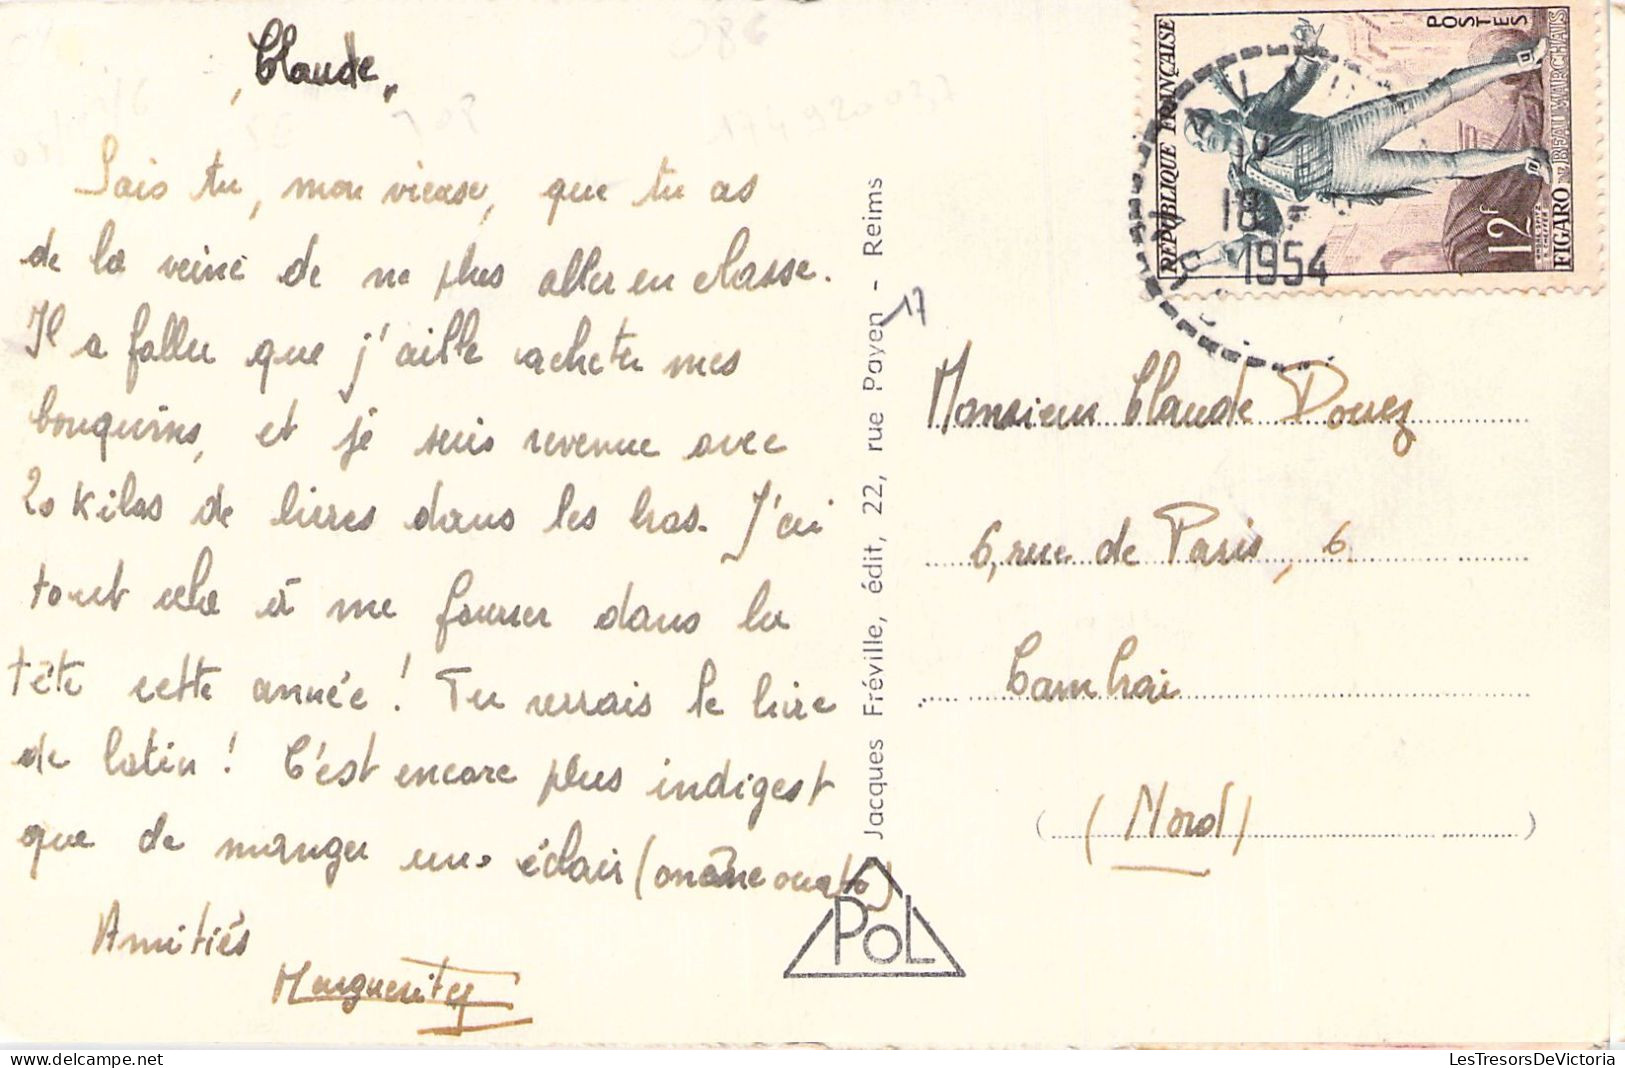 Claude,
Sais tu, mon vieux, que tu as
de la veine de ne plus aller en classe.
Il a fallu que j'aille acheter mes
bouquins, et je suis revenue avec
20 kilos de livres dans les bras. J'ai
tout cela à me fourrer dans la
tête cette année ! Tu verrais le livre
de latin ! C'est encore plus indigest
que de manger un éclair (
Amitiés
Marguerite
Jacques Fréville, édit, 22, rue Payen - Reims
17
POL
RÉPUBLIQUE FRANÇAISE
POSTES
12f
FIGARO DE BEAUMARCHAIS
18
1954
Monsieur Claude Douez
6, rue de Paris, 6
Cambrai
(Nord)
LesTresorsDeVictoria